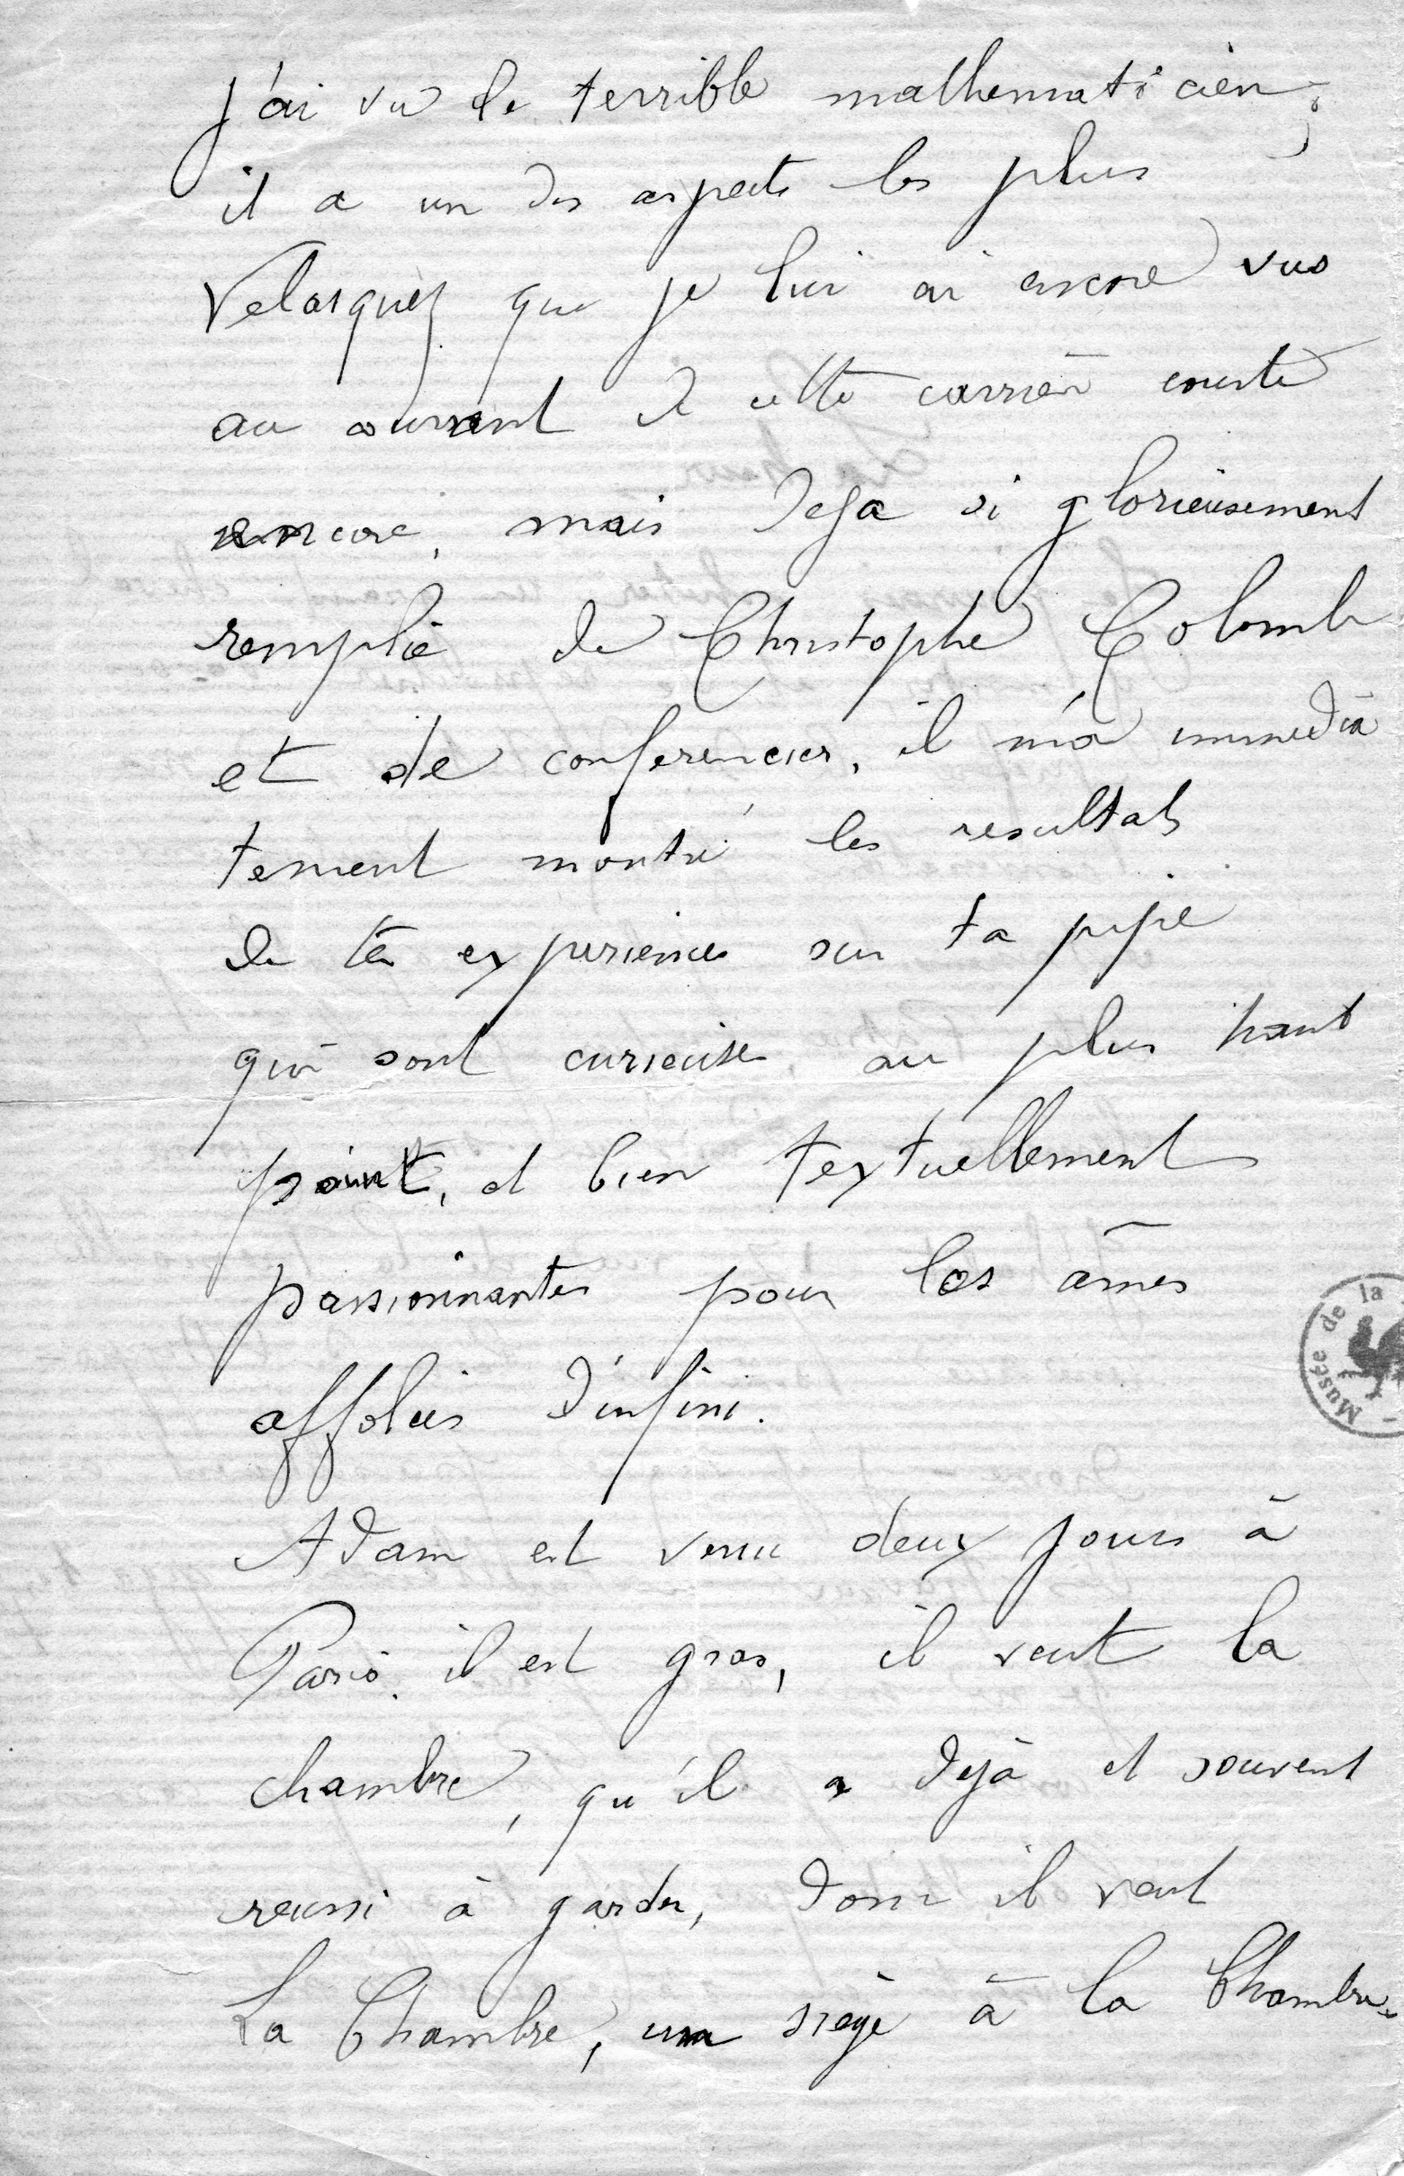 J'ai vu le terrible mathematicien;
il a un des aspects les plus
Velasquez que je lui ai encore vus
au courant de cette carrière courte
encore, mais deja si glorieusement
remplie de Christophe Colomb
et de conferencier, il m'a immedia
tement montré les resultats
de tes experiences sur ta pipe
qui sont curieuses au plus haut
point, et bien textuellement
passionnantes pour les âmes
affolées d'infini.
Adam est venu deux jours à
Paris. il est gras, il veut la
chambre, qu'il a dejà et souvent
reussi à garder, donc il veut
La Chambre, un siege à la Chambre.
Musée de la